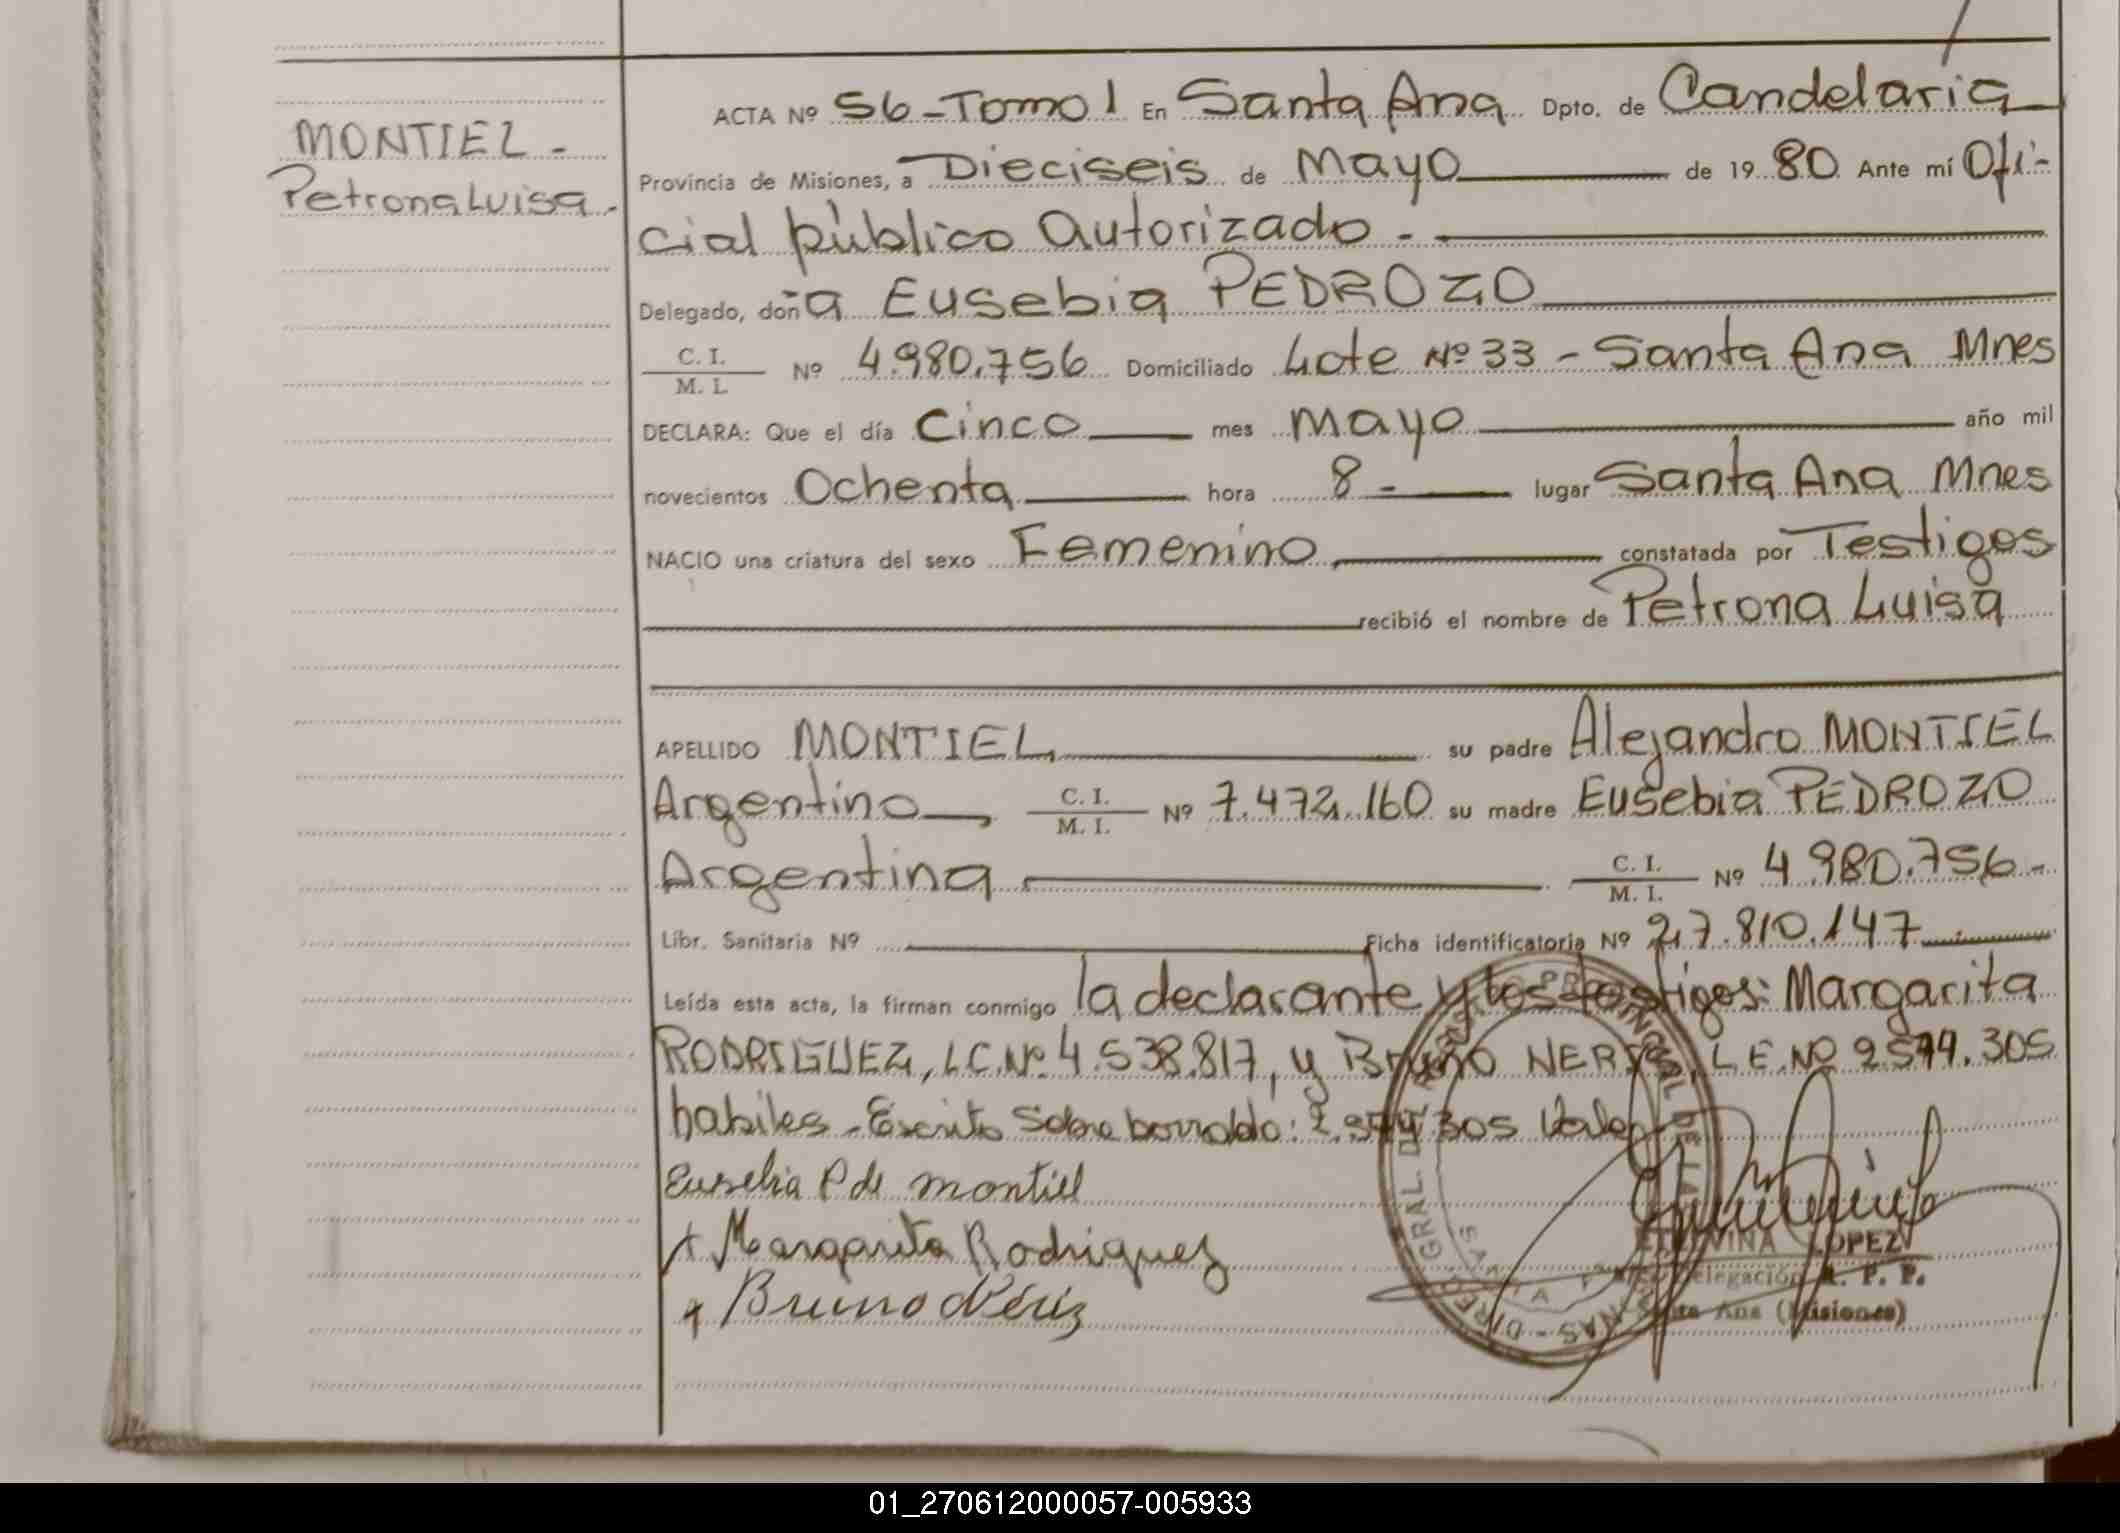 MONTIEL -
Petrona Luisa -
ACTA Nº 56 - Tomo 1 En Santa Ana Dpto. de Candelaria
Provincia de Misiones, a Dieciseis de Mayo de 1980 Ante mí Ofi-
cial público autorizado -
Delegado, doña Eusebia PEDROZO
C. I. / M. I. Nº 4.980.756 Domiciliado Lote Nº 33 - Santa Ana Mnes
DECLARA: Que el día Cinco mes mayo año mil
novecientos Ochenta hora 8 - lugar Santa Ana Mnes
NACIO una criatura del sexo Femenino constatada por Testigos
recibió el nombre de Petrona Luisa
APELLIDO MONTIEL su padre Alejandro MONTIEL
Argentino C. I. / M. I. Nº 7.472.160 su madre Eusebia PEDROZO
Argentina C. I. / M. I. Nº 4.980.756 -
Libr. Sanitaria Nº Ficha identificatoria Nº 27.810.147
Leída esta acta, la firman conmigo la declarante y los testigos: Margarita
RODRIGUEZ, L.C. Nº 4.538.817, y Bruno L.E. Nº
habiles - Escrito Sobre borrado: Vale
Eusebia P de montiel
+ Margarita Rodriguez
+ Bruno
LOPEZ
Delegación R. P. P.
Santa Ana (Misiones)
01_270612000057-005933